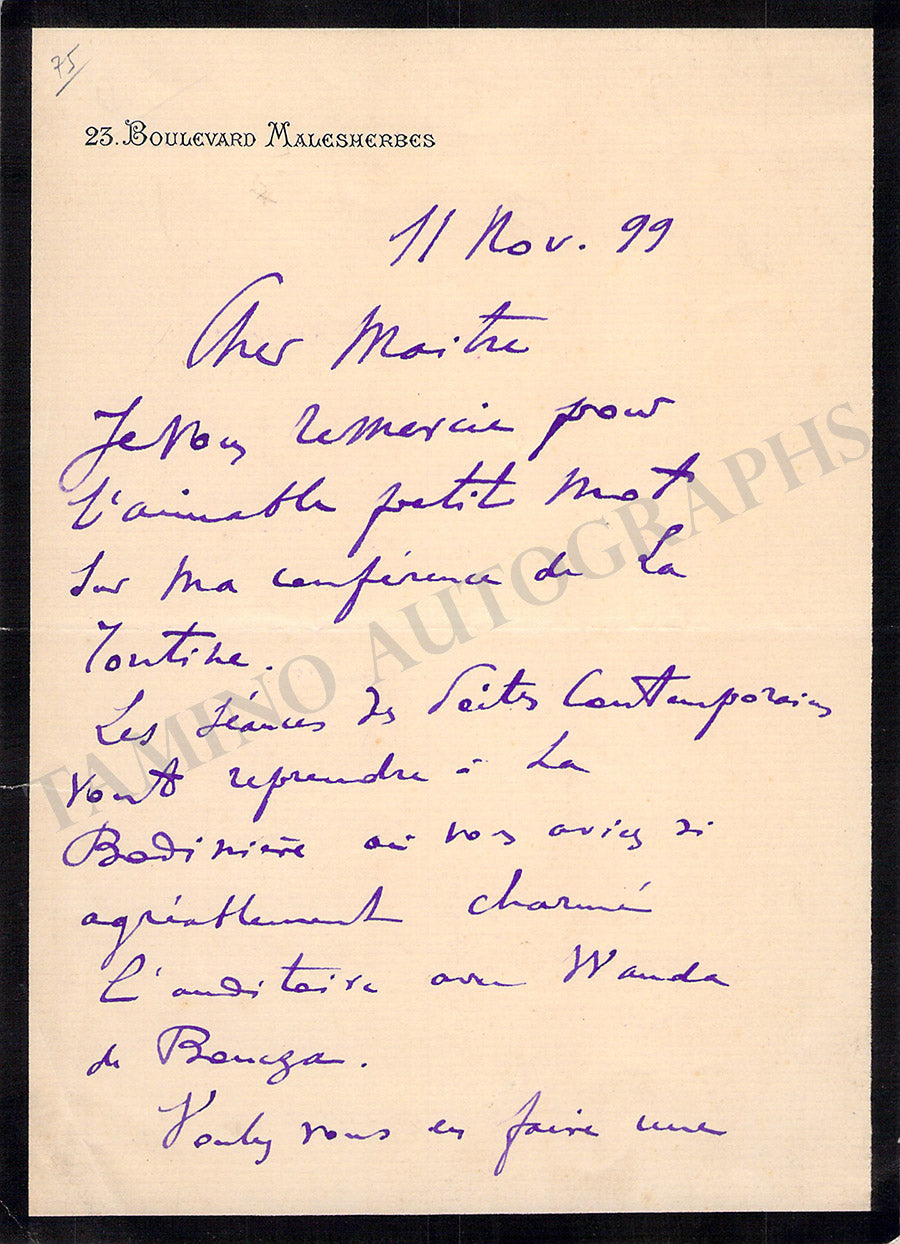 75
23. BOULEVARD MALESHERBES
11 Nov. 99
Cher Maitre
Je vous remercie pour
l'aimable petit mot
sur ma conférence de La
Tontine.
Les séances des Poètes Contemporains
vont reprendre à La
Bodinière où vous aviez si
agréablement charmé
l'auditoire avec Wanda
de Boncza.
Voulez vous en faire une
TAMINO AUTOGRAPHS